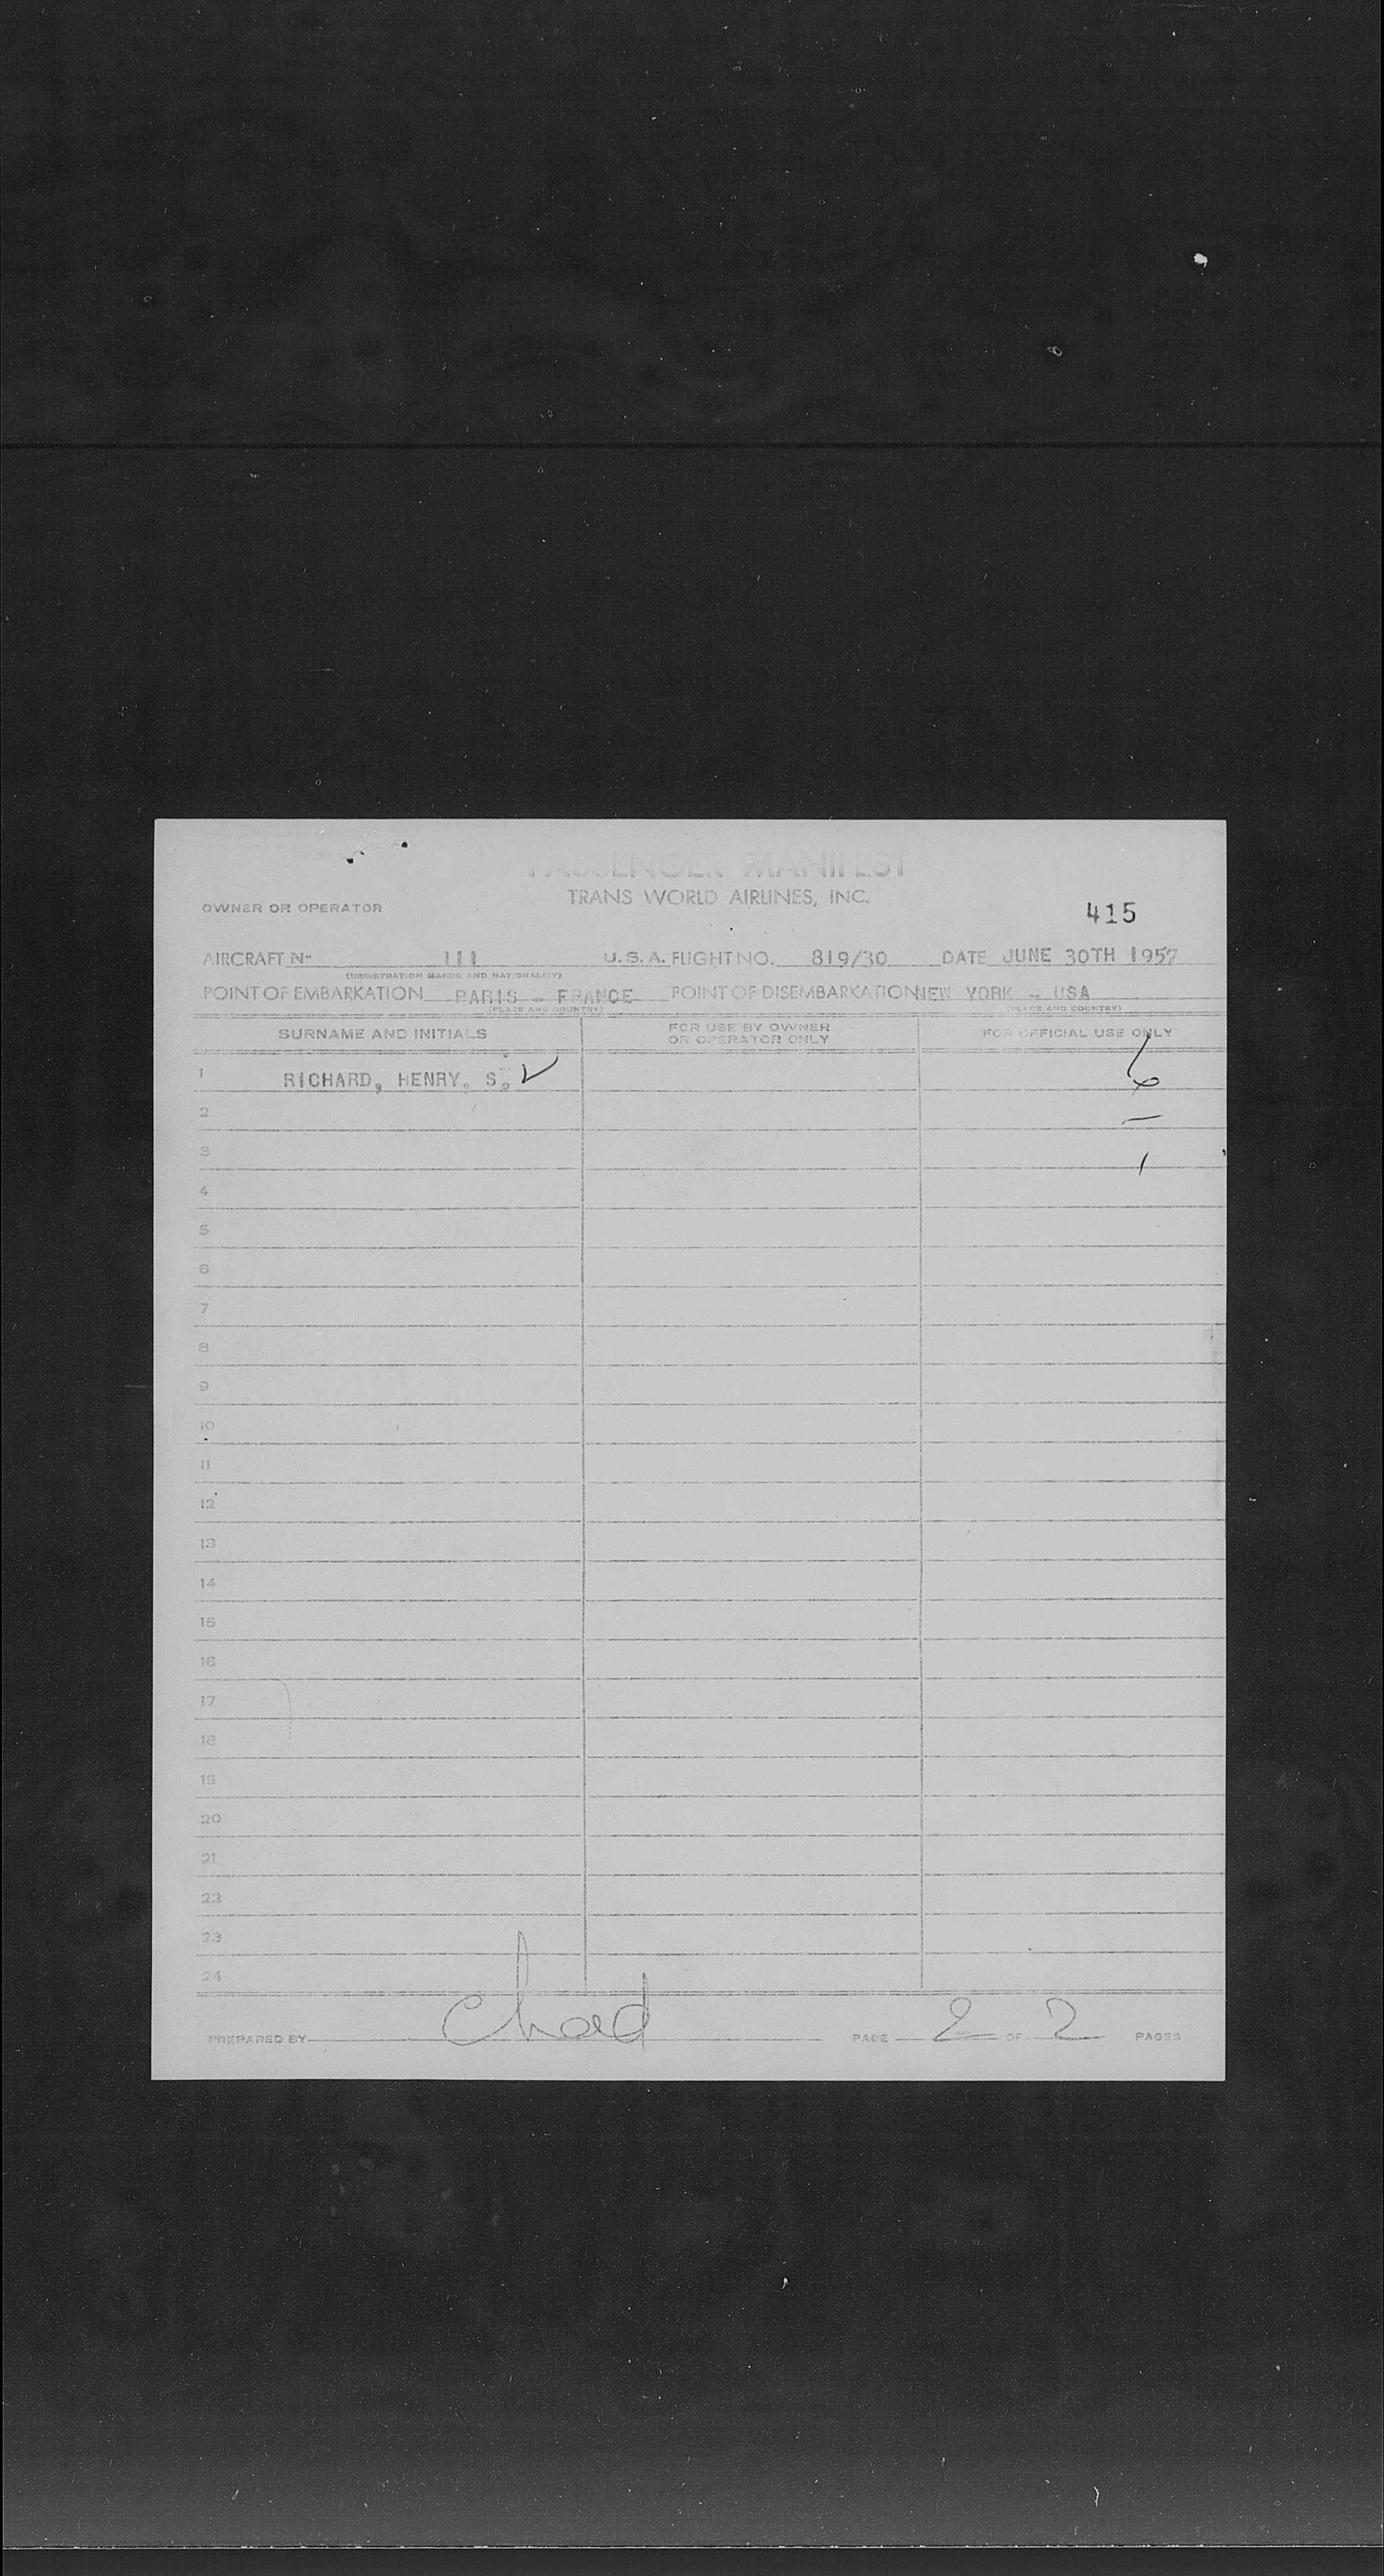 PASSENGER MANIFEST
TRANS WORLD AIRLINES, INC.
OWNER OR OPERATOR
415
AIRCRAFT Nº 111 U.S.A. FLIGHT NO. 819/30 DATE JUNE 30TH 1957
(REGISTRATION MARKS AND NATIONALITY)
POINT OF EMBARKATION PARIS - FRANCE POINT OF DISEMBARKATION NEW YORK - USA
(PLACE AND COUNTRY) (PLACE AND COUNTRY)
SURNAME AND INITIALS FOR USE BY OWNER OR OPERATOR ONLY FOR OFFICIAL USE ONLY
1 RICHARD, HENRY. S.
2
3
4
5
6
7
8
9
10
11
12
13
14
15
16
17
18
19
20
21
22
23
24
PREPARED BY PAGE 2 OF 2 PAGES